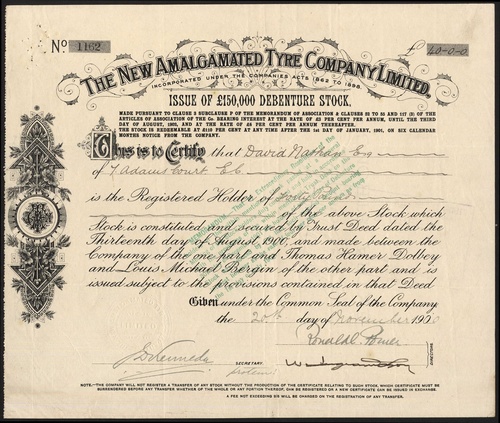 No 1162
£ 40-0-0
THE NEW AMALGAMATED TYRE COMPANY LIMITED.
INCORPORATED UNDER THE COMPANIES ACTS 1862 TO 1898.
ISSUE OF £150,000 DEBENTURE STOCK.
MADE PURSUANT TO CLAUSE 3 SUBCLAUSE P OF THE MEMORANDUM OF ASSOCIATION & CLAUSES
ARTICLES OF ASSOCIATION OF THE Co. BEARING INTEREST AT THE RATE OF £5 PER CENT PER ANNUM, UNTIL THE THIRD
DAY OF AUGUST, 1903, AND AT THE RATE OF PER CENT PER ANNUM THEREAFTER.
THE STOCK IS REDEEMABLE AT £110 PER CENT AT ANY TIME AFTER THE 1st DAY OF JANUARY, 1901, ON SIX CALENDAR
MONTHS NOTICE FROM THE COMPANY.
This is to Certify that David Nathan Esq
of 7 Adams Court E.C.
is the Registered Holder of Forty Pounds
of the above Stock which
Stock is constituted and secured by Trust Deed dated the
Thirteenth day of August 1900, and made between the
Company of the one part and Thomas Hamer Dolbey
and Louis Michael Bergin of the other part and is
issued subject to the provisions contained in that Deed
Given under the Common Seal of the Company
the 20th day of November 1900
DIRECTORS.
SECRETARY.
NOTE:-THE COMPANY WILL NOT REGISTER A TRANSFER OF ANY STOCK WITHOUT THE PRODUCTION OF THE CERTIFICATE RELATING TO SUCH STOCK, WHICH CERTIFICATE MUST BE
SURRENDERED BEFORE ANY TRANSFER WHETHER OF THE WHOLE OR ANY PORTION THEREOF, CAN BE REGISTERED OR A NEW CERTIFICATE CAN BE ISSUED IN EXCHANGE.
A FEE NOT EXCEEDING 2/6 WILL BE CHARGED ON THE REGISTRATION OF ANY TRANSFER.